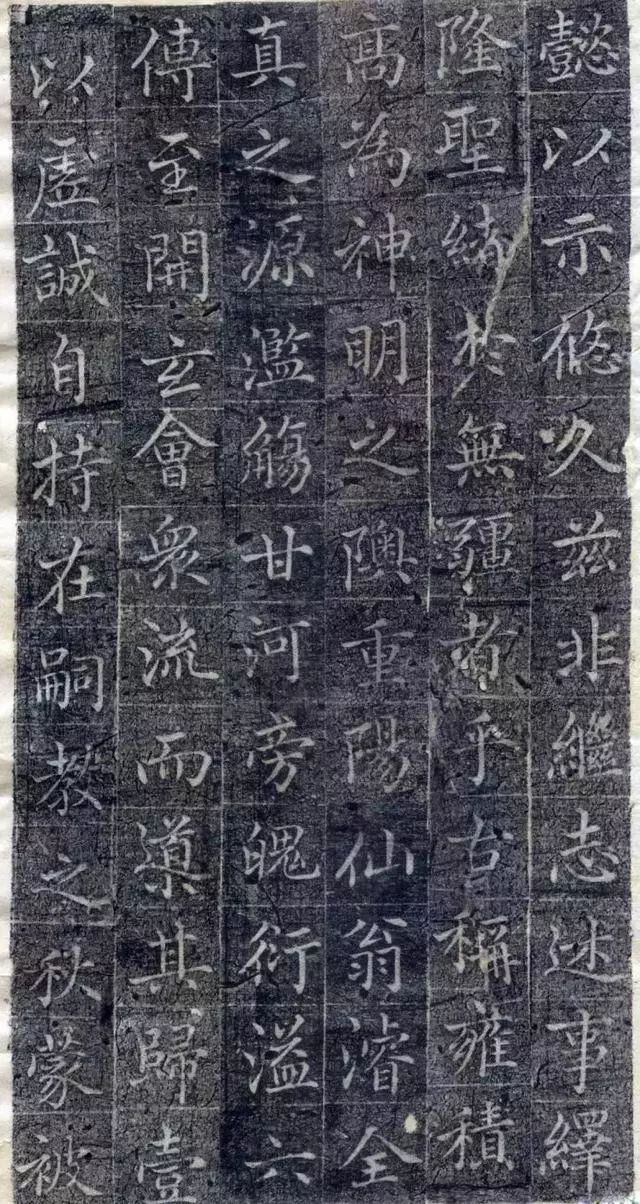 懿以示悠久茲非繼志述事繹
隆聖緒於無疆者乎古稱雍積
高為神明之隩重陽仙翁濬全
真之源濫觴甘河旁魄衍溢六
傳至開玄會衆流而導其歸壹
以虛誠自持在嗣教之秋蒙被